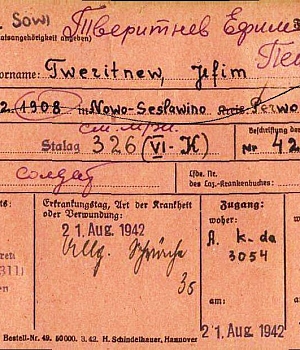 Sowj Тверитнев Ефим
aatsangehörigkeit angeben)
orname: Tweritnew, Jefim
2. 1908 in Nowo-Seslawino Kreis Perwo
см. мри.
Stalag 326 (VI-K) Beschriftung de
Nr 42
солдат
Lfde. Nr.
des Laz.-Krankenbuches:
Erkrankungstag, Art der Krankheit Zugang:
oder Verwundung: woher:
21. Aug. 1942 A. k-do
3054
Allg. Schwäche
311)
35
am: am
21. Aug 1942
Bestell-Nr. 49. 50000. 3. 42. H. Schindelhauer, Hannover